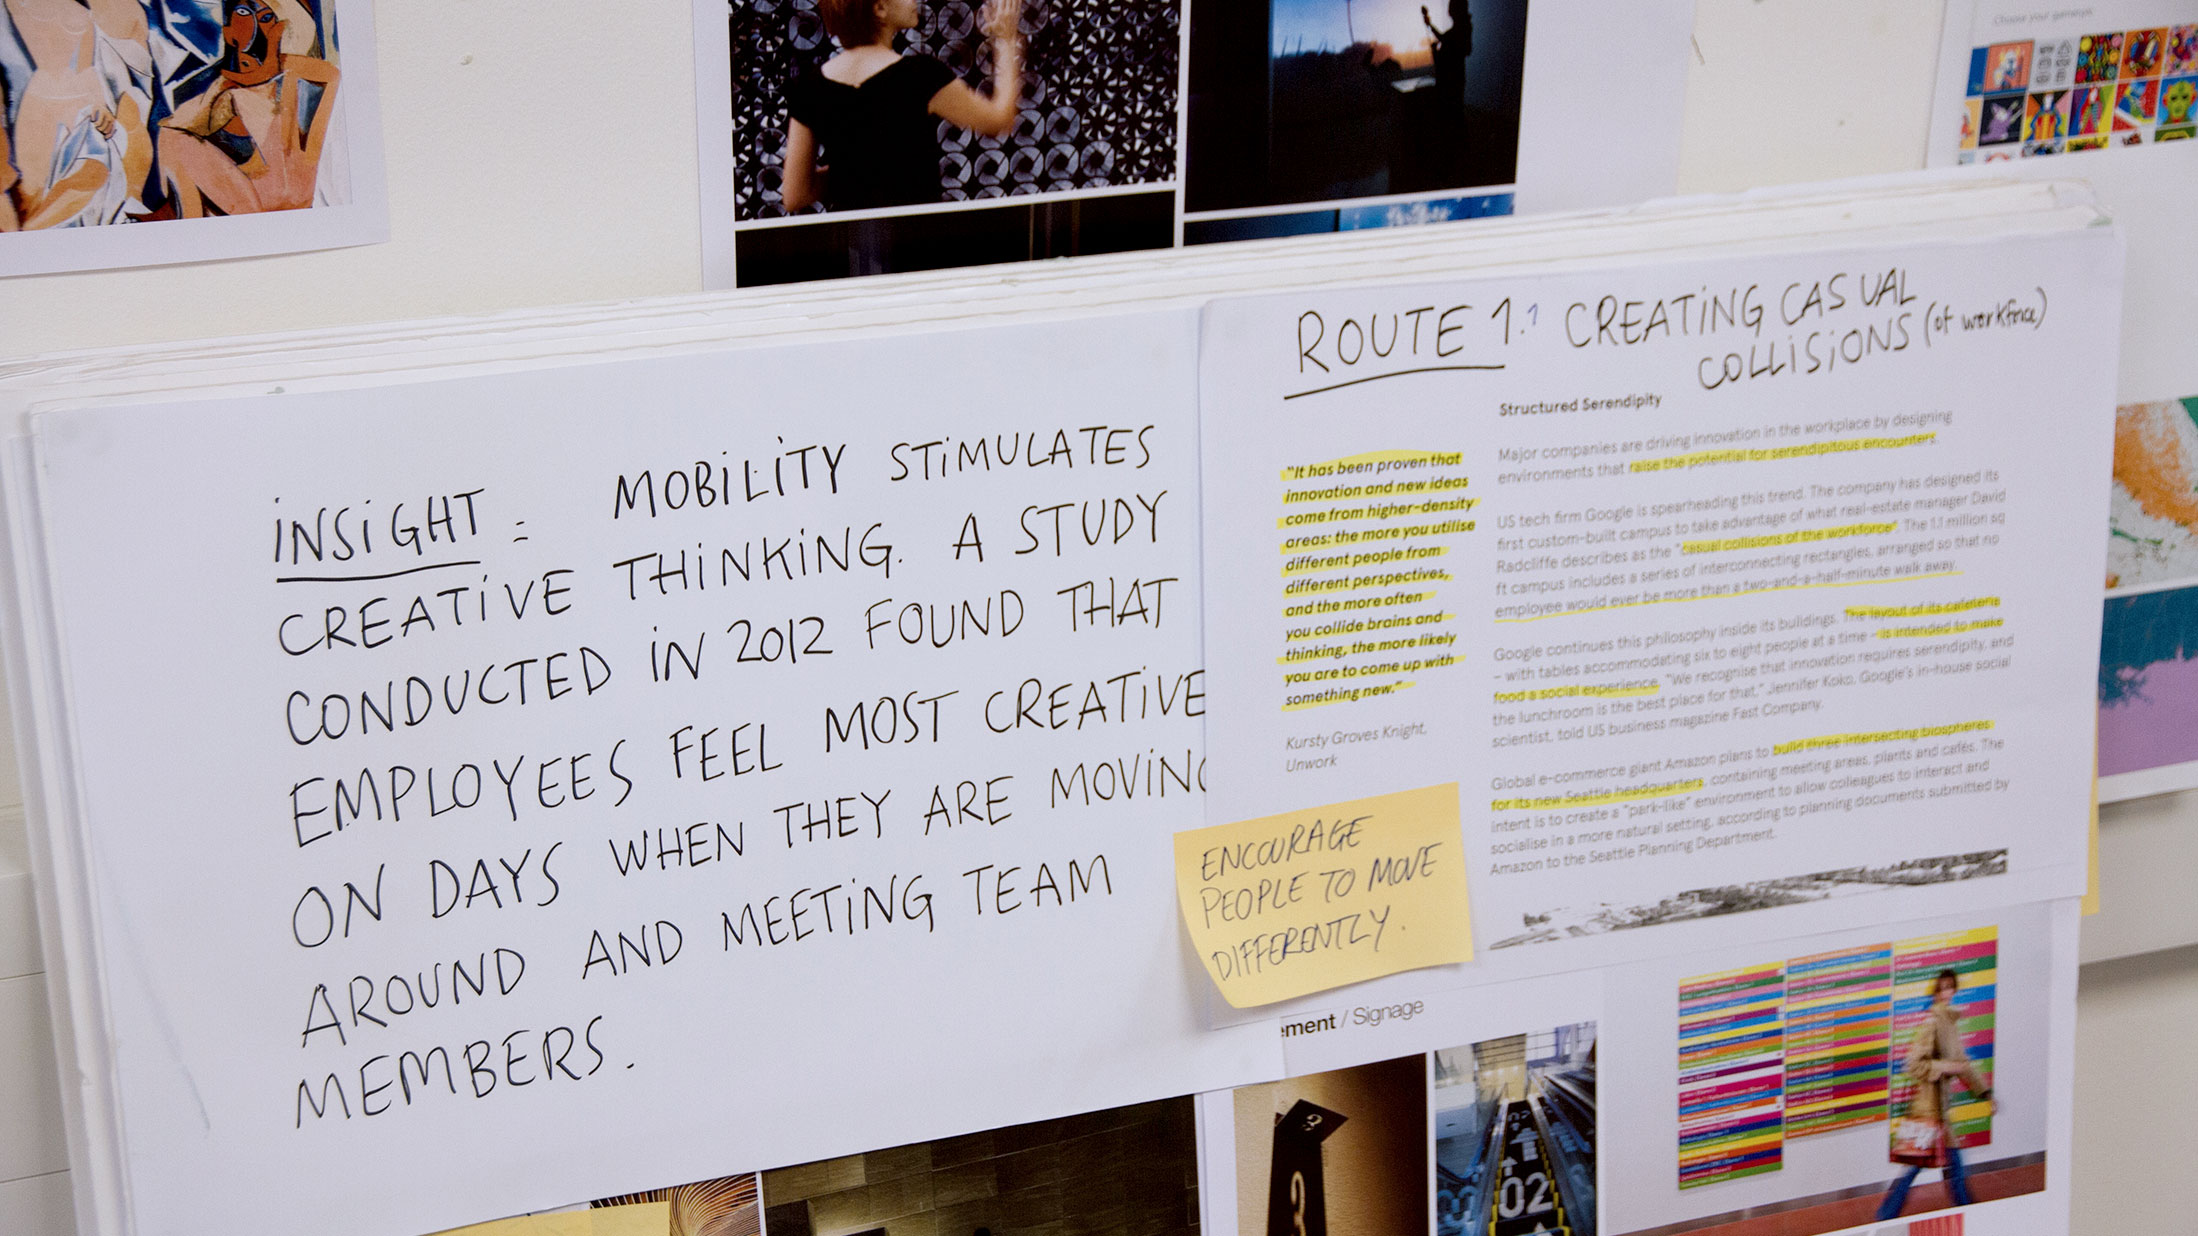 Choose your
INSIGHT: MOBILITY STIMULATES
CREATIVE THINKING. A STUDY
CONDUCTED IN 2012 FOUND THAT
EMPLOYEES FEEL MOST CREATIVE
ON DAYS WHEN THEY ARE MOVING
AROUND AND MEETING TEAM
MEMBERS.
ROUTE 1.1 CREATING CASUAL
COLLISIONS (of workforce)
"It has been proven that
innovation and new ideas
come from higher-density
areas: the more you utilise
different people from
different perspectives,
and the more often
you collide brains and
thinking, the more likely
you are to come up with
something new."
Kursty Groves Knight,
Unwork
Structured Serendipity
Major companies are driving innovation in the workplace by designing
environments that raise the potential for serendipitous encounters.
US tech firm Google is spearheading this trend. The company has designed its
first custom-built campus to take advantage of what real-estate manager David
Radcliffe describes as the "casual collisions of the workforce". The 1.1 million sq
ft campus includes a series of interconnecting rectangles, arranged so that no
employee would ever be more than a two-and-a-half-minute walk away.
Google continues this philosophy inside its buildings. The layout of its cafeteria
– with tables accommodating six to eight people at a time – is intended to make
food a social experience. "We recognise that innovation requires serendipity, and
the lunchroom is the best place for that," Jennifer Koko, Google's in-house social
scientist, told US business magazine Fast Company.
Global e-commerce giant Amazon plans to build three intersecting biospheres
for its new Seattle headquarters, containing meeting areas, plants and cafés. The
intent is to create a "park-like" environment to allow colleagues to interact and
socialise in a more natural setting, according to planning documents submitted by
Amazon to the Seattle Planning Department.
ENCOURAGE
PEOPLE TO MOVE
DIFFERENTLY.
ement / Signage
3
3
02